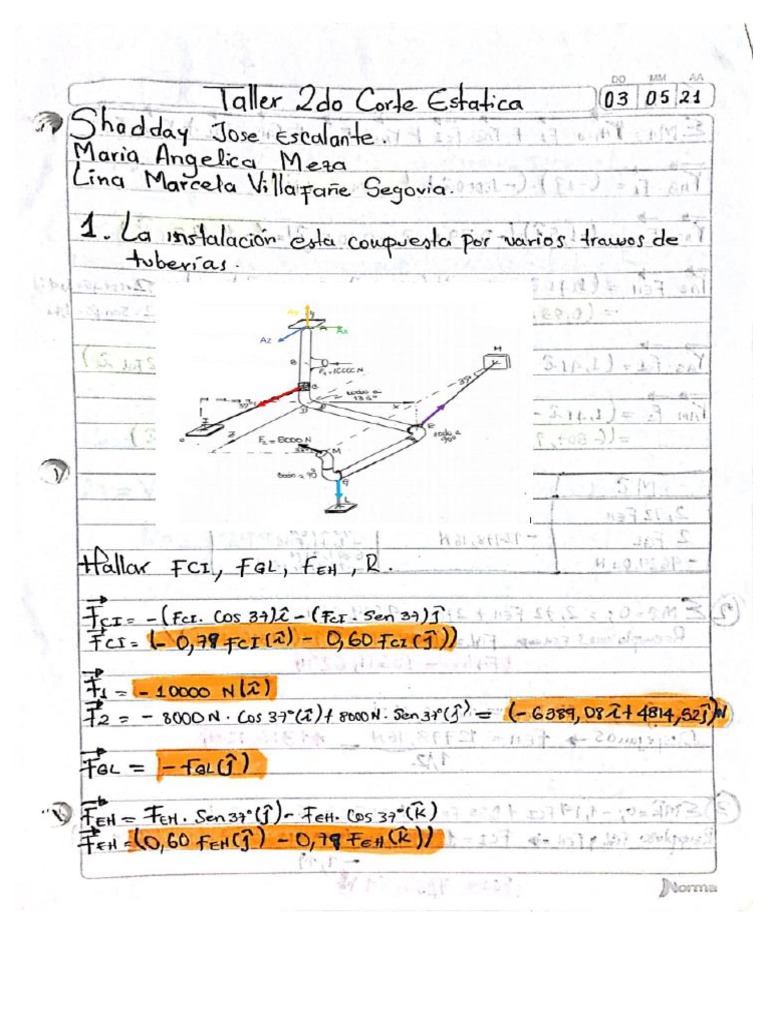 DD MM AA
Taller 2do Corte Estatica 03 05 21
Shadday Jose Escalante.
Maria Angelica Meza
Lina Marcela Villafañe Segovia.
1. La instalación esta compuesta por varios tramos de
tuberías.
Ay
y
A
Az
Ax
B
F₁=10000N
H
C
37°
codo a
135°
x
37°
I
D
E
Z
F₂ = 8000 N
codo a
90°
37°
M
codo a 90
G
L
Hallar FCI, FGL, FEH, R.
FCI = -(FCI. Cos 37)î - (FCI. Sen 37)ĵ
FCI = (-0,79 FCI(î) - 0,60 FCI(ĵ))
F1 = -10000 N(î)
F2 = -8000N. Cos 37°(î) + 8000N. Sen 37°(ĵ) = (-6389,08î + 4814,52ĵ)N
FGL = -FGL(ĵ)
FEH = FEH. Sen 37°(ĵ) - FEH. Cos 37°(k̂)
FEH = (0,60 FEH(ĵ) - 0,79 FEH(k̂))
Norma